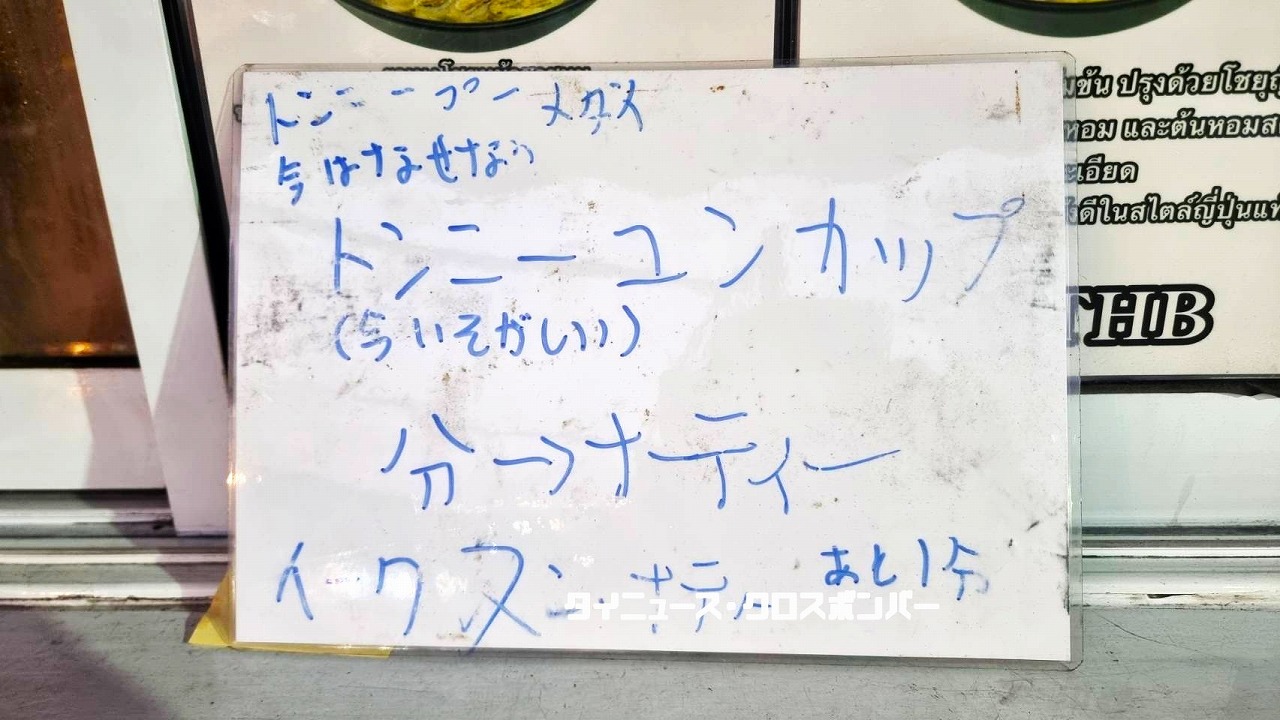 トンニープー メダメ
今はなせなう
トンニーユンカップ
(今いそがしい)
分→ナティー
イークヌンナティー あと1分
タイニュース・クロスボンバー
มข้น ปรุงด้วยโชยุญ
หอม และต้นหอมส
ะเอียด
ดีในสไตล์ญี่ปุ่นแท
THB